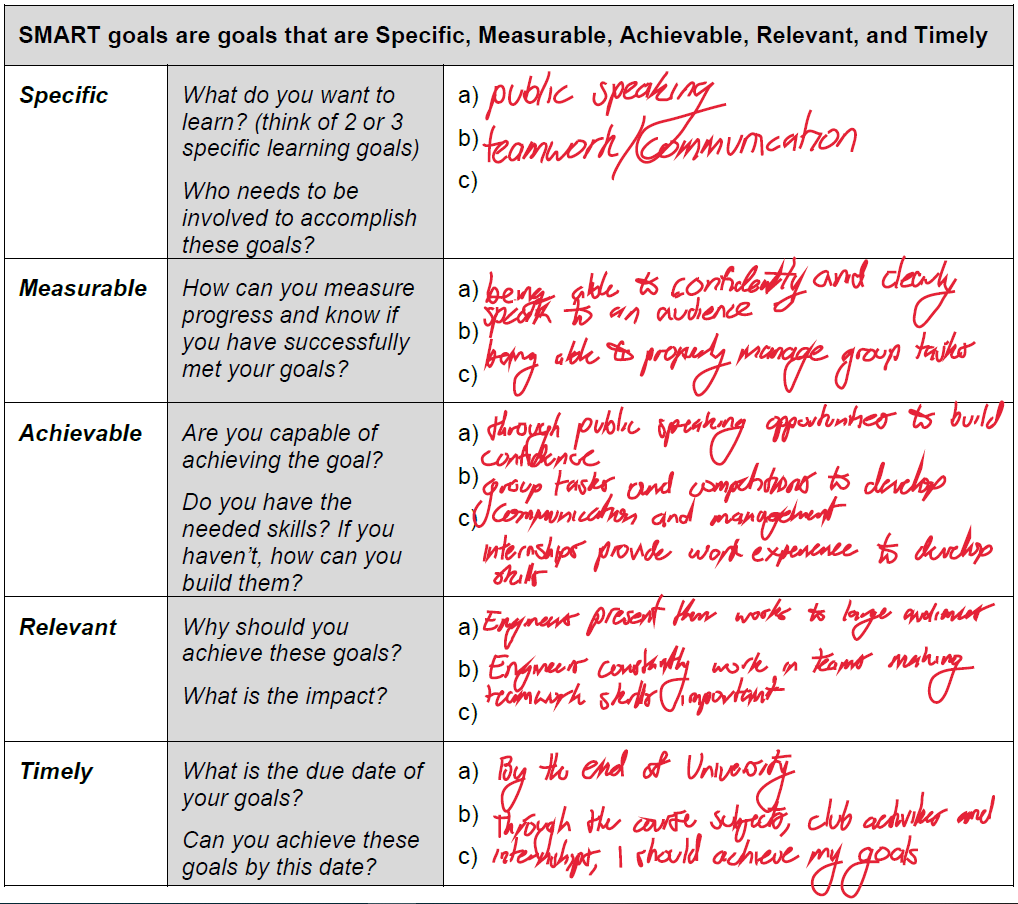 SMART goals are goals that are Specific, Measurable, Achievable, Relevant, and Timely
Specific
What do you want to
learn? (think of 2 or 3
specific learning goals)
Who needs to be
involved to accomplish
these goals?
a) public speaking
b) teamwork/Communication
c)
Measurable
How can you measure
progress and know if
you have successfully
met your goals?
a) being able to confidently and clearly
speak to an audience
b)
being able to properly manage group tasks
c)
Achievable
Are you capable of
achieving the goal?
Do you have the
needed skills? If you
haven't, how can you
build them?
a) through public speaking opportunities to build
confidence
b) group tasks, and competitions to develop
c) communication and management
internships provide work experience to develop
skills
Relevant
Why should you
achieve these goals?
What is the impact?
a) Engineers present their works to large audiences
b) Engineers constantly work in teams making
teamwork skills important
c)
Timely
What is the due date of
your goals?
Can you achieve these
goals by this date?
a) By the end of University
b) Through the course subjects, club activities and
c) internships, I should achieve my goals